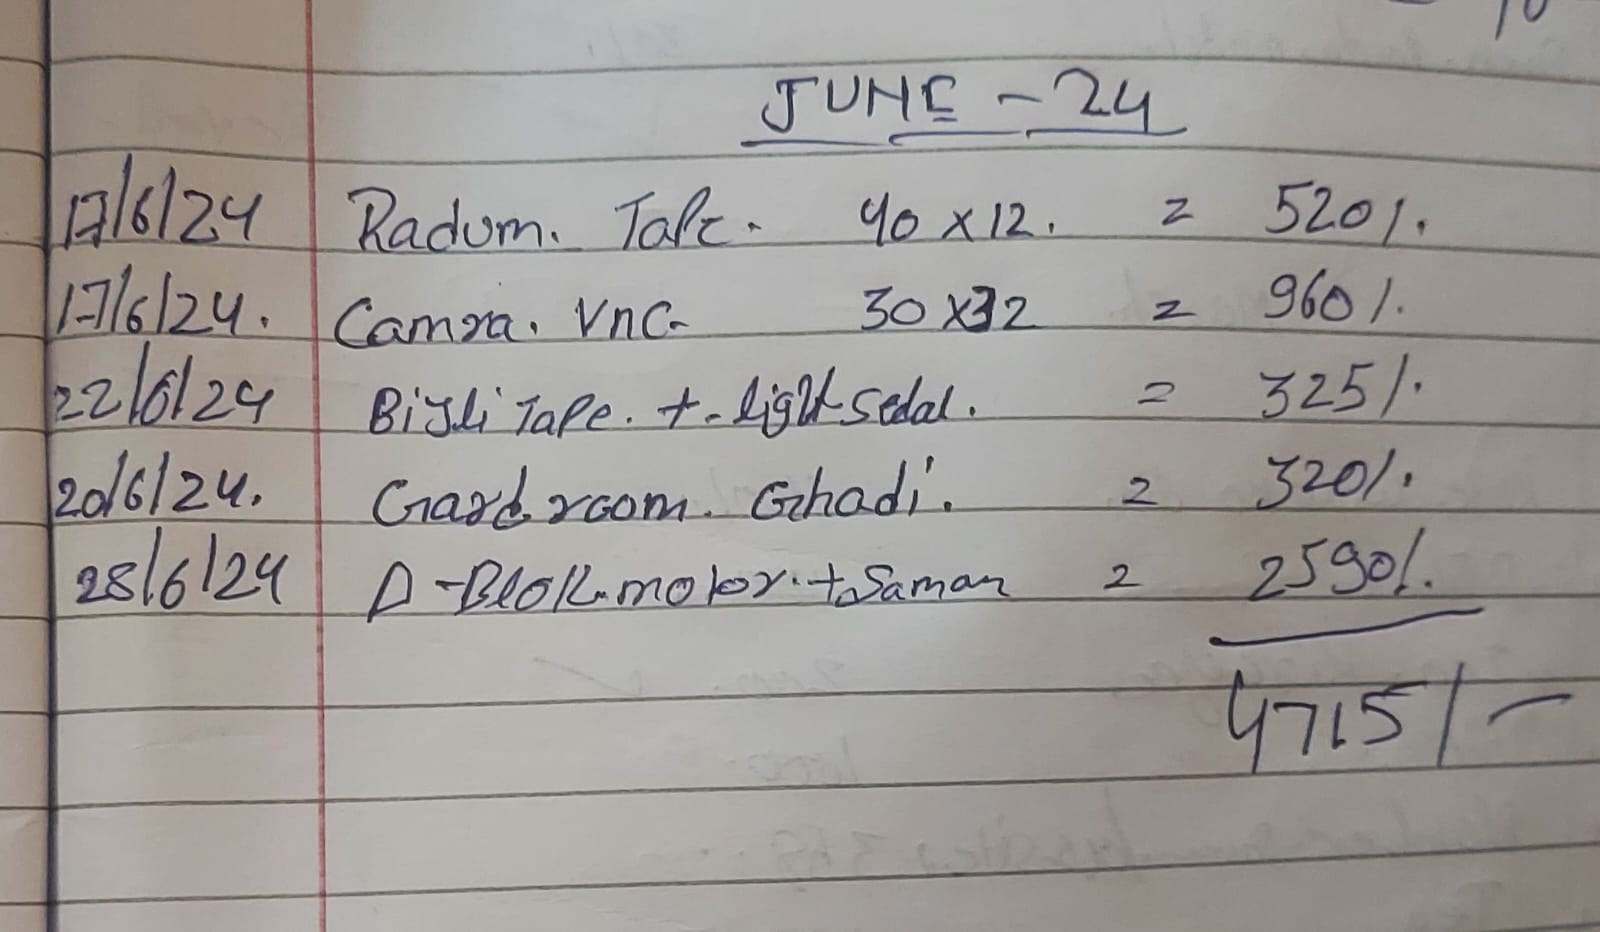 JUNE - 24
17/6/24 Radum. Tape. 40 x 12. = 520/.
17/6/24. Camra. VnC. 30 x 32 = 960/.
22/6/24 Bijli Tape. + light sedal. = 325/.
20/6/24. Gard room. Ghadi. = 320/.
28/6/24 D-Blok motor. + Saman = 2590/.
4715/-